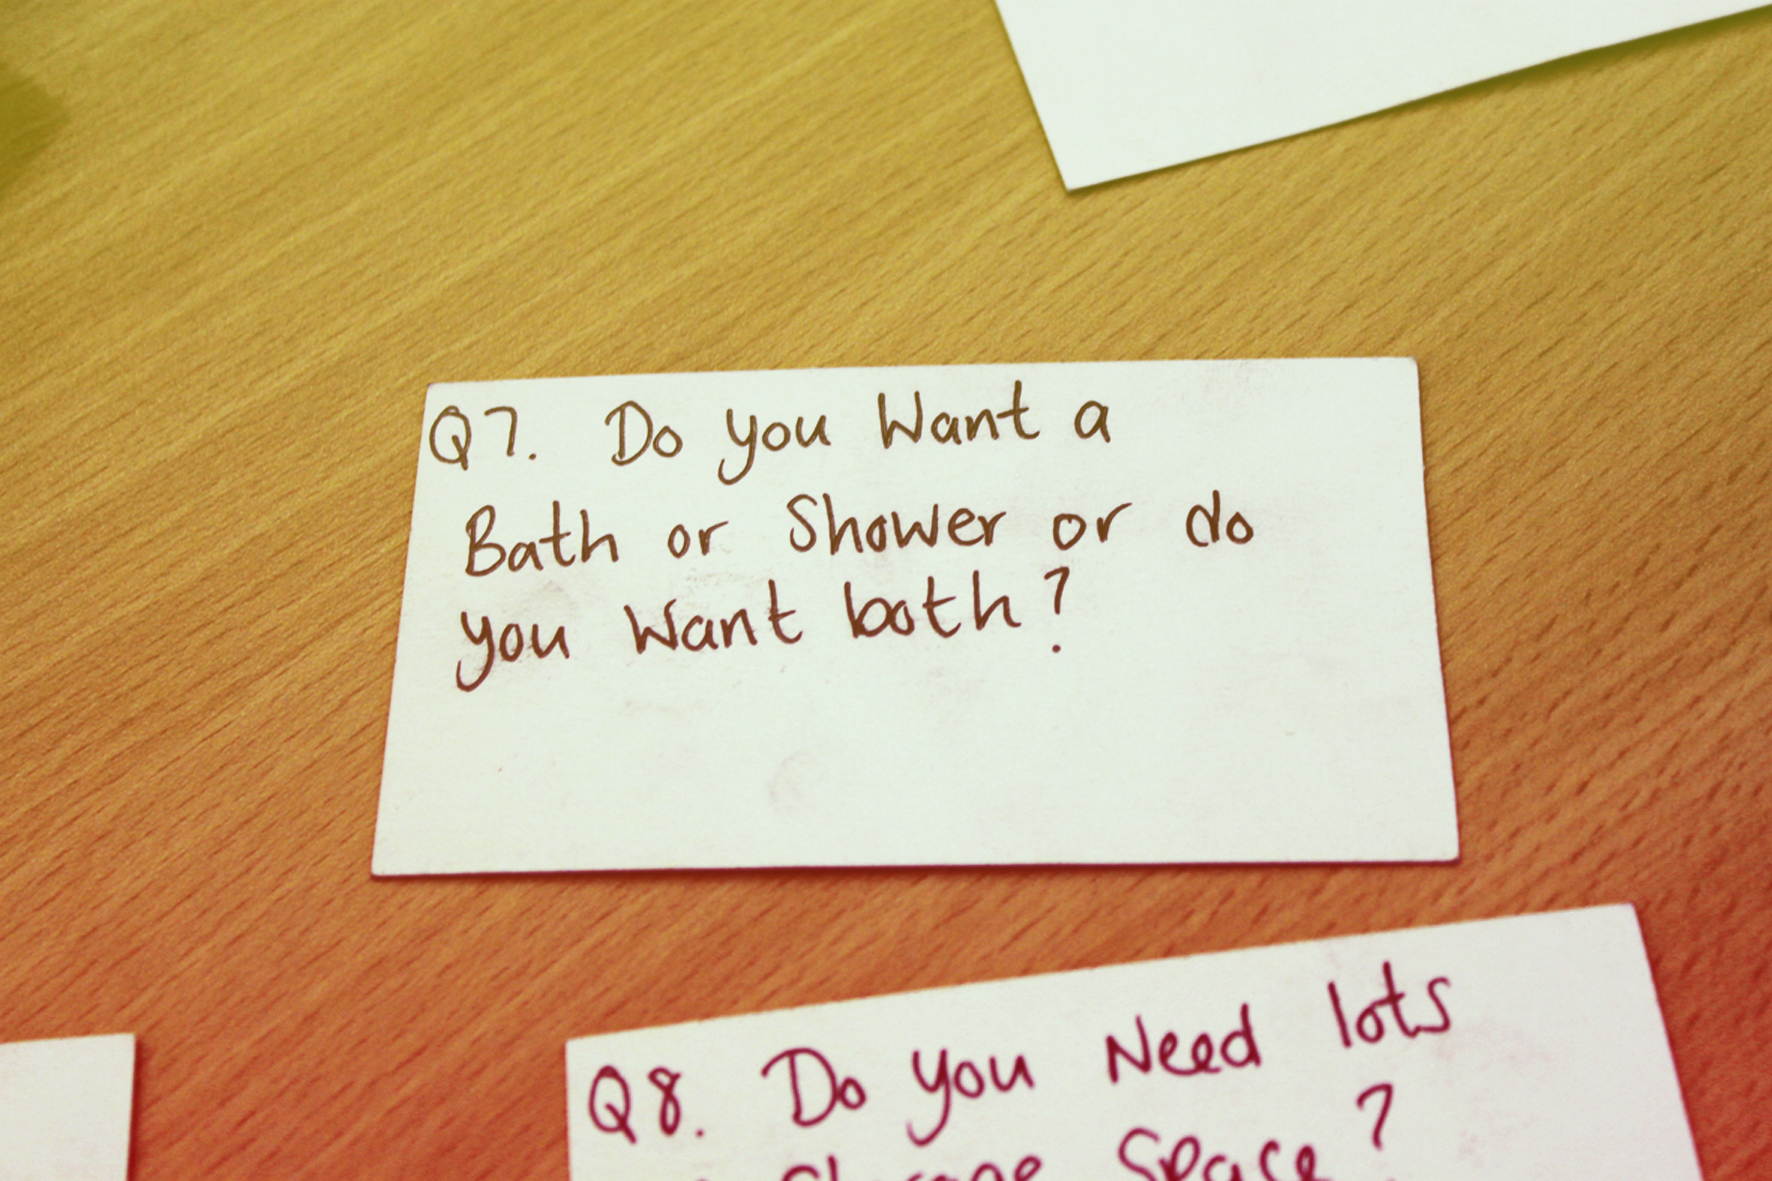 Q7. Do you Want a
Bath or Shower or do
you Want both?
Q8. Do you Need lots
Storage Space?